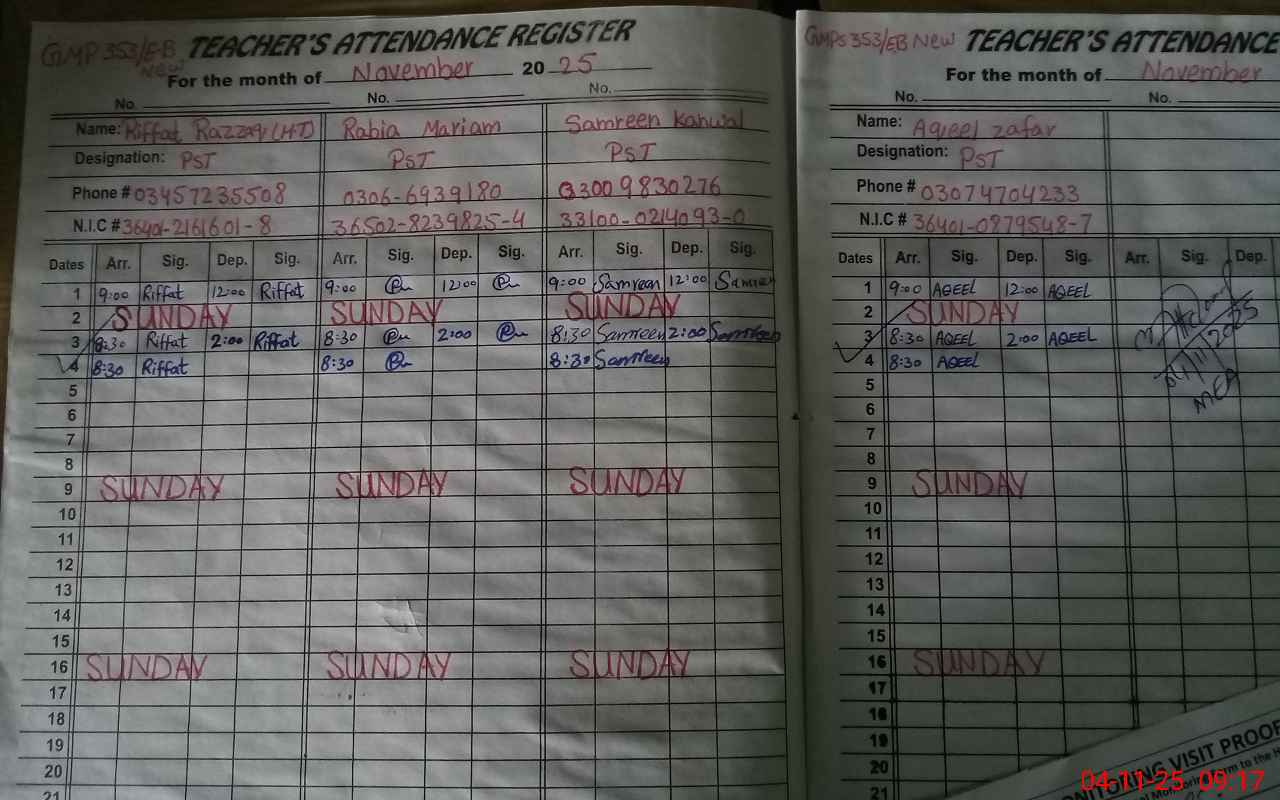 GMP 353/EB New TEACHER'S ATTENDANCE REGISTER
For the month of November 20 25
No. No. No.
Name: Riffat Razzaq (HT) Rabia Mariam Samreen Kanwal
Designation: PST PST PST
Phone # 03457235508 0306-6939180 03009830276
N.I.C # 36401-2161601-8 36502-8239825-4 33100-0214093-0
Dates Arr. Sig. Dep. Sig. Arr. Sig. Dep. Sig. Arr. Sig. Dep. Sig.
1 9:00 Riffat 12:00 Riffat 9:00 12:00 9:00 Samreen 12:00 Samreen
2 SUNDAY SUNDAY SUNDAY
3 8:30 Riffat 2:00 Riffat 8:30 2:00 8:30 Samreen 2:00 Samreen
4 8:30 Riffat 8:30 8:30 Samreen
5
6
7
8
9 SUNDAY SUNDAY SUNDAY
10
11
12
13
14
15
16 SUNDAY SUNDAY SUNDAY
17
18
19
20
21
GMPS 353/EB New TEACHER'S ATTENDANCE
For the month of November
No. No.
Name: Aqeel zafar
Designation: PST
Phone # 03074704233
N.I.C # 36401-0879548-7
Dates Arr. Sig. Dep. Sig. Arr. Sig. Dep.
1 9:00 AQEEL 12:00 AQEEL
2 SUNDAY
3 8:30 AQEEL 2:00 AQEEL
4 8:30 AQEEL
5
6
7
8
9 SUNDAY
10
11
12
13
14
15
16 SUNDAY
17
18
19
20
21
MEA
MONITORING VISIT PROOF
to the
04-11-25 09:17